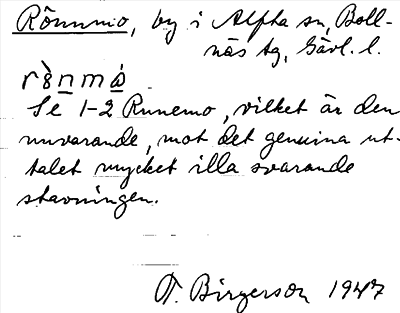 Rönnmo, by i Alfta sn, Boll-
näs tg, Gävl. l.
Se 1-2 Runemo, vilket är den
nuvarande, mot det genuina ut-
talet mycket illa svarande
stavningen.
T. Birgerson 1947